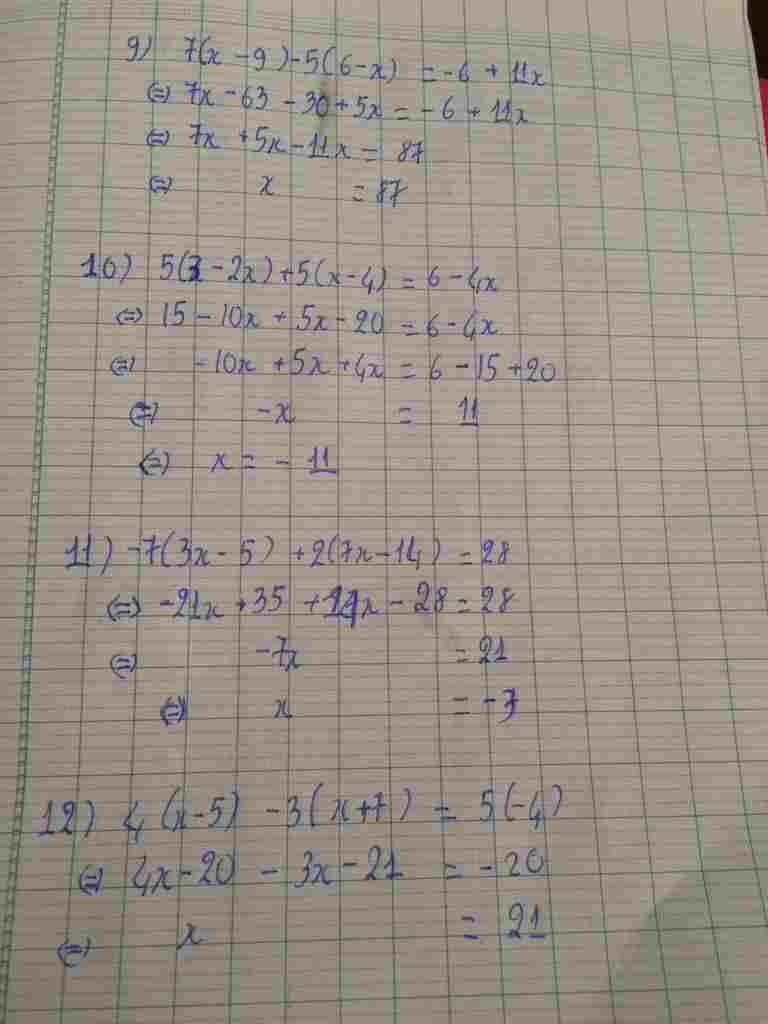 9) 7(x - 9) - 5(6 - x) = -6 + 11x
⇔ 7x - 63 - 30 + 5x = -6 + 11x
⇔ 7x + 5x - 11x = 87
⇔ x = 87
10) 5(3 - 2x) + 5(x - 4) = 6 - 4x
⇔ 15 - 10x + 5x - 20 = 6 - 4x
⇔ -10x + 5x + 4x = 6 - 15 + 20
⇔ -x = 11
⇔ x = - 11
11) -7(3x - 5) + 2(7x - 14) = 28
⇔ -21x + 35 + 14x - 28 = 28
⇔ -7x = 21
⇔ x = -3
12) 4(x - 5) - 3(x + 7) = 5(-4)
⇔ 4x - 20 - 3x - 21 = -20
⇔ x = 21